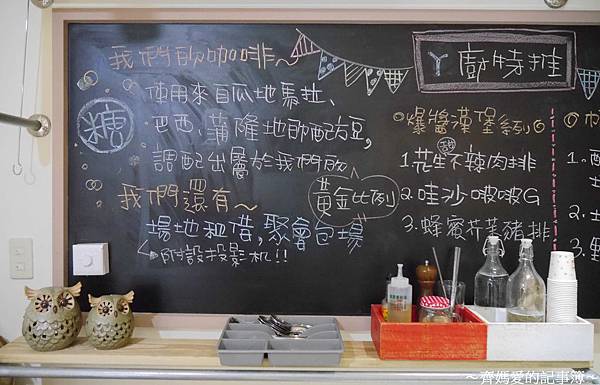 我們ㄉ咖啡～
使用來自瓜地馬拉、
巴西、蒲隆地ㄉ配方豆,
調配出屬於我們ㄉ
黃金比例
糖
我們還有～
場地租借,聚會包場
附設投影机!!
ㄚ廚特推
爆醬漢堡系列
甜
1.花生不辣肉排
2.哇沙啵啵G
3.蜂蜜芥茉豬排
1.
2.
3.
～齊媽愛的記事簿～